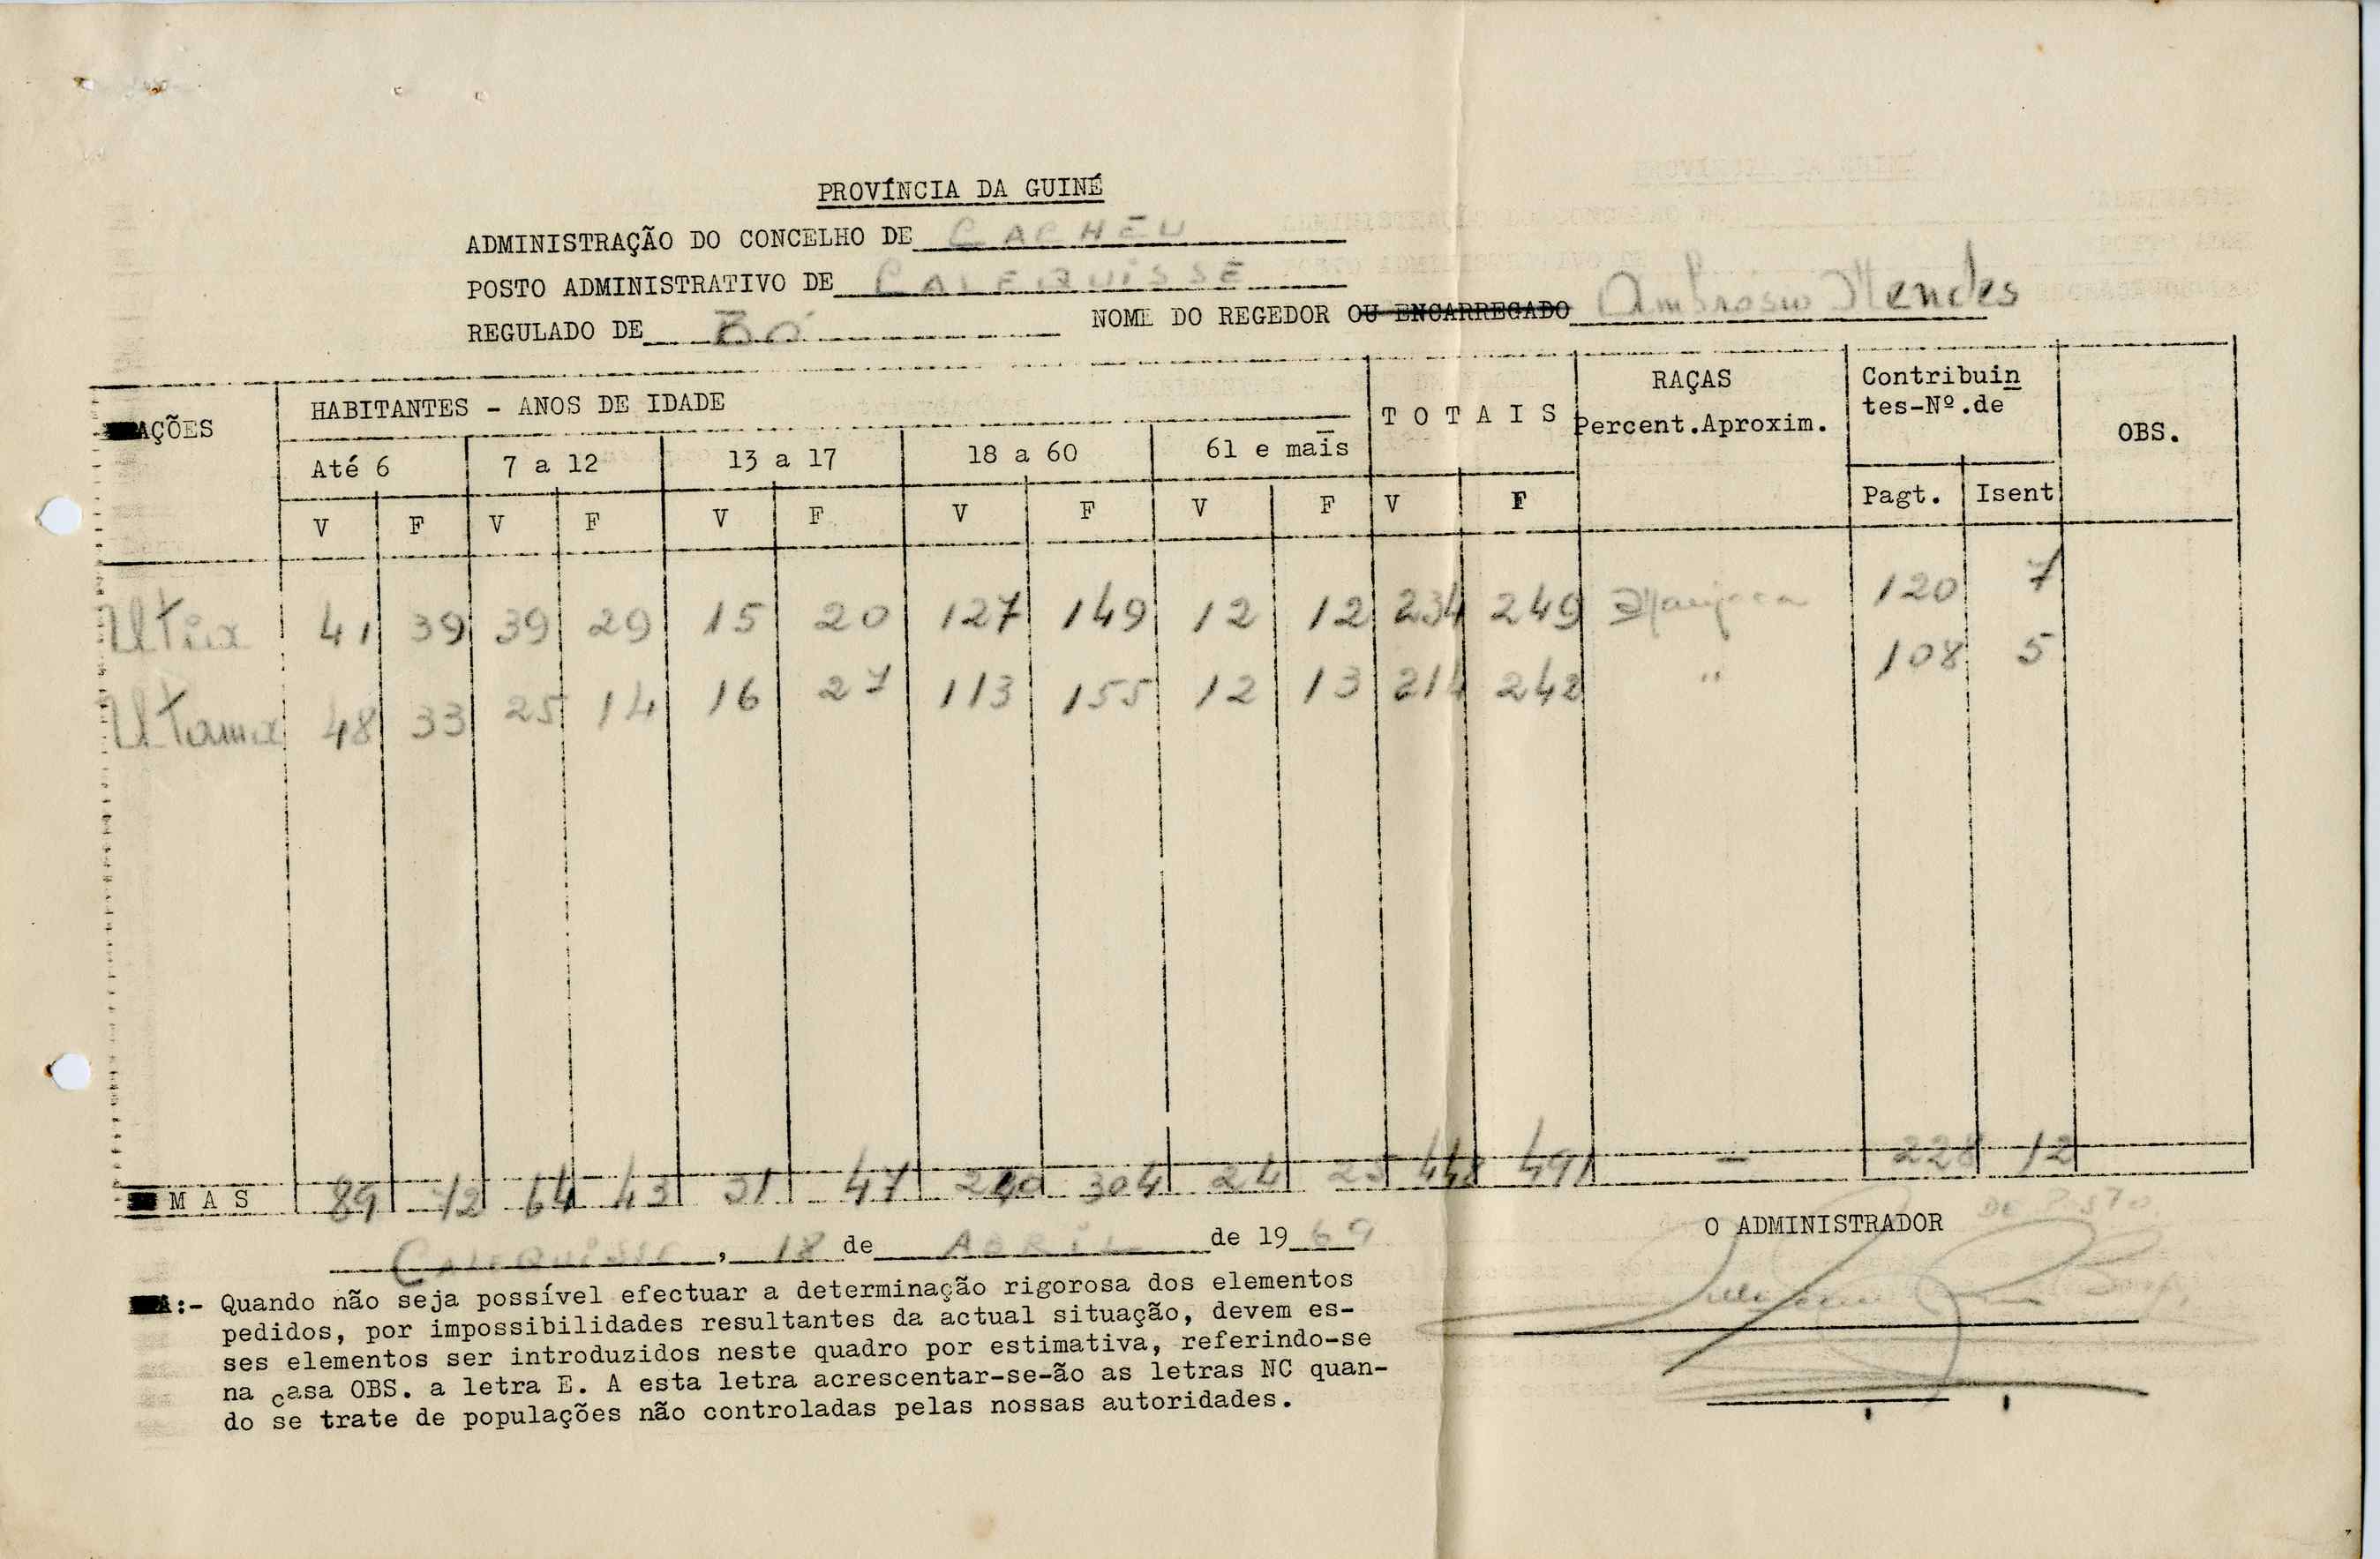 PROVÍNCIA DA GUINÉ
ADMINISTRAÇÃO DO CONCELHO DE CACHEU
POSTO ADMINISTRATIVO DE CALEQUISSE
REGULADO DE BÓ NOME DO REGEDOR OU ENCARREGADO Ambrosio Mendes
AÇÕES HABITANTES - ANOS DE IDADE T O T A I S RAÇAS Percent.Aproxim. Contribuin
tes-Nº.de OBS.
Até 6 7 a 12 13 a 17 18 a 60 61 e mais Pagt. Isent
V F V F V F V F V F V F
41 39 39 29 15 20 127 149 12 12 234 249 Manjaca 120 7
Utama 48 33 25 14 16 27 113 155 12 13 214 242 " 108 5
M A S 89 72 64 43 31 47 240 304 24 25 448 491 - 228 12
CALEQUISSE, 18 de ABRIL de 1969
O ADMINISTRADOR DE POSTO
:- Quando não seja possível efectuar a determinação rigorosa dos elementos
pedidos, por impossibilidades resultantes da actual situação, devem es-
ses elementos ser introduzidos neste quadro por estimativa, referindo-se
na casa OBS. a letra E. A esta letra acrescentar-se-ão as letras NC quan-
do se trate de populações não controladas pelas nossas autoridades.